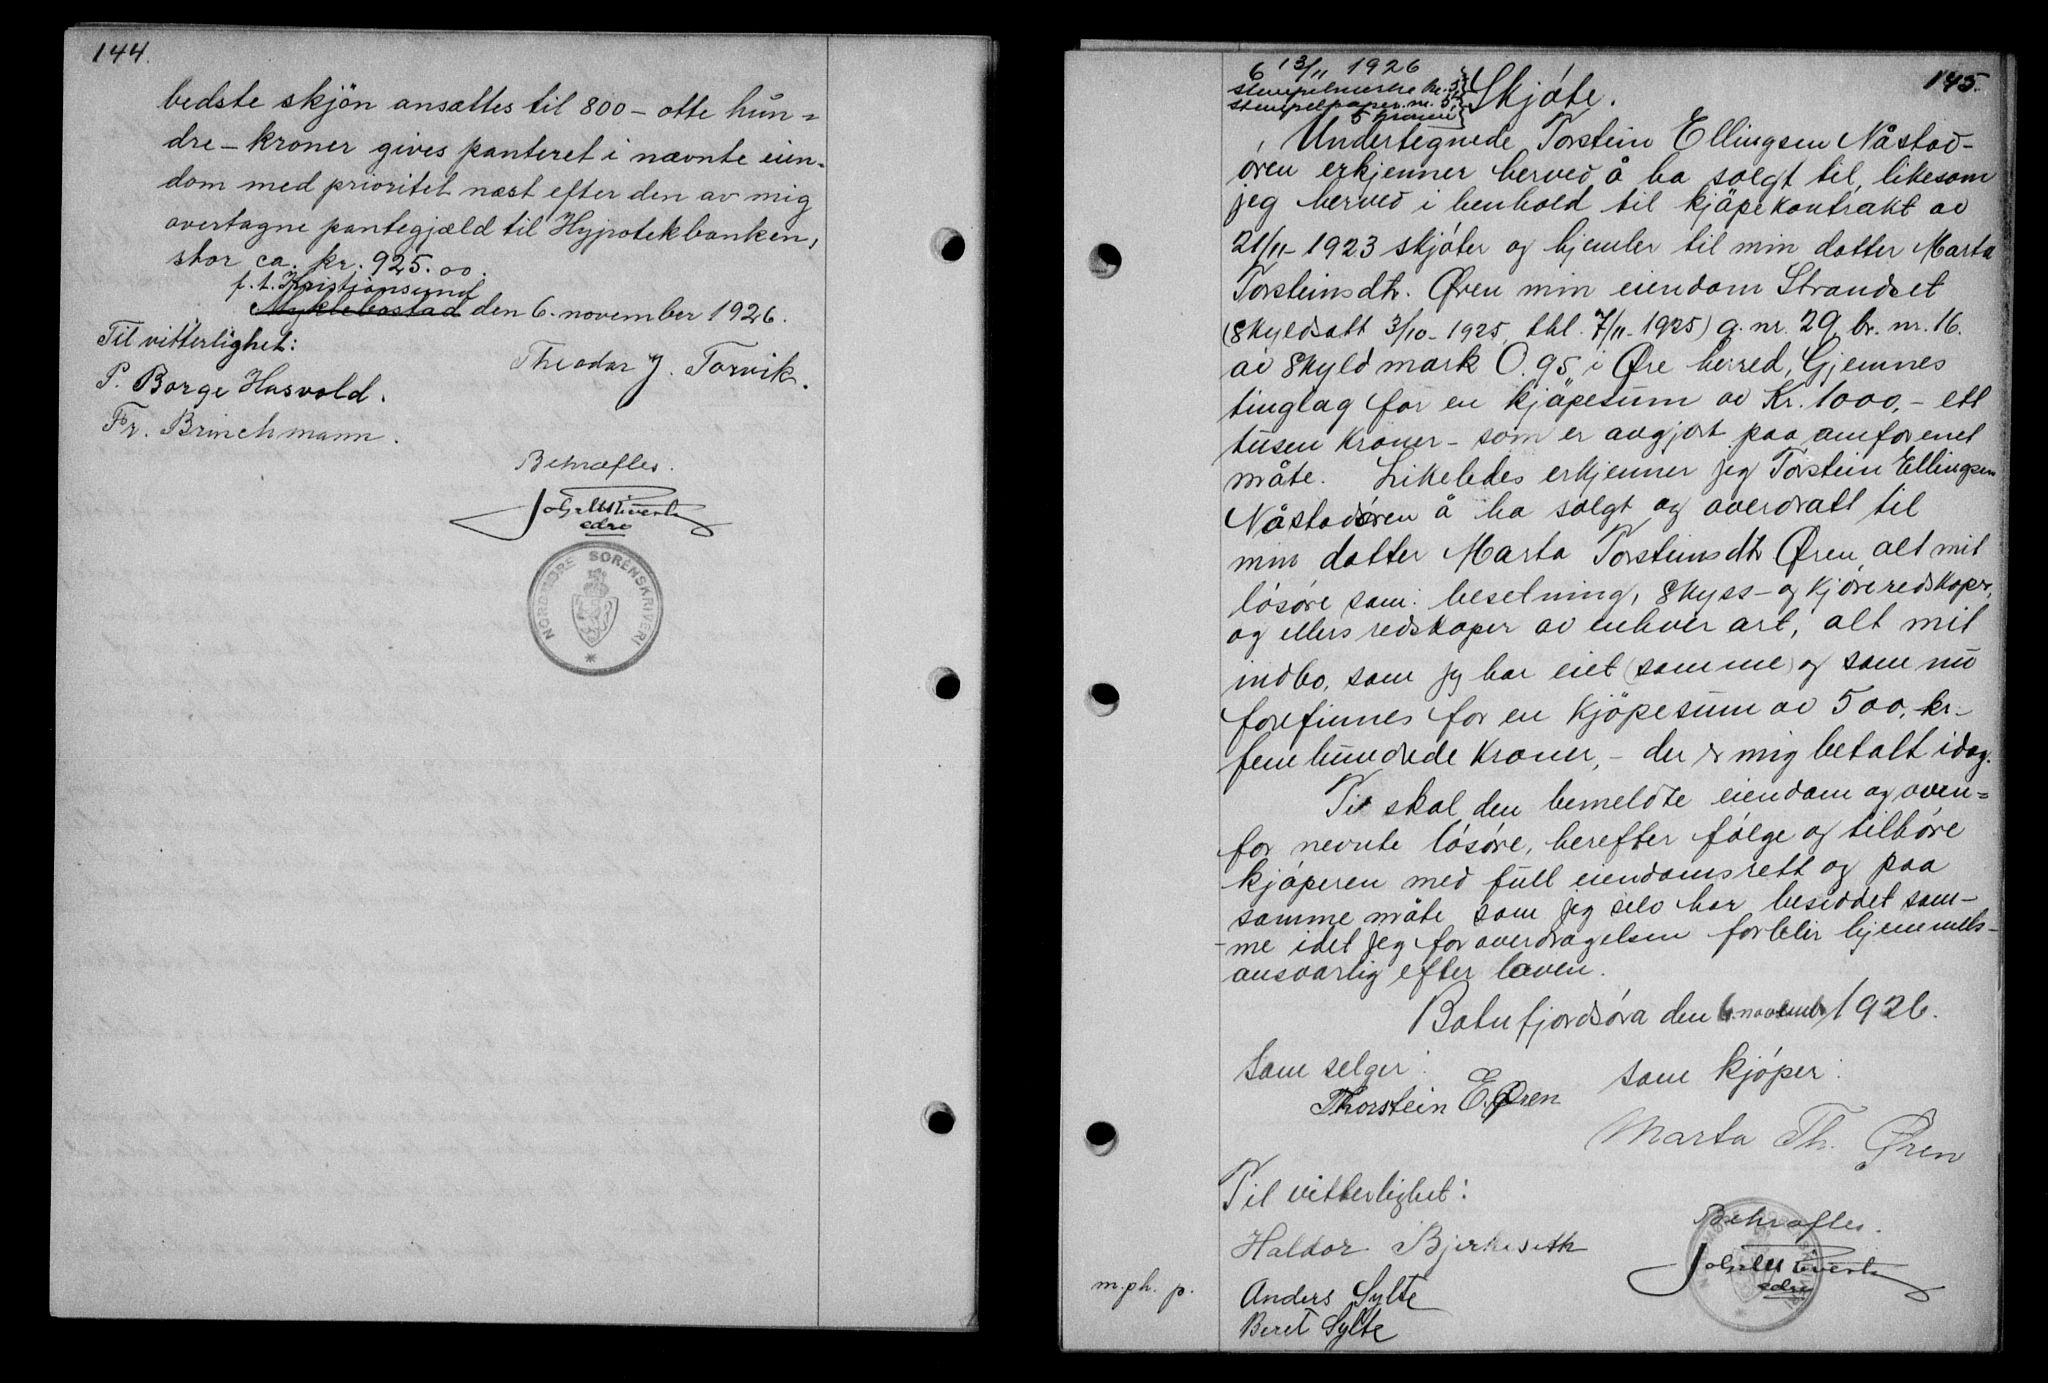 144.
bedste skjön ansættes til 800 - otte hun=
dre - kroner gives panteret i nævnte eien=
dom med prioritet næst efter den av mig
overtagne pantegjæld til Hypotekbanken,
stor ca. kr. 925.00.
p. t. Kristiansund
Myklebostad den 6. november 1926.
Til vitterlighet:
Theodor J. Torvik.
P. Borge Hasvold.
Fr. Brinchmann.
Bekræftes.
edre
NORDMØRE SORENSKRIVERI
145.
6 13/11 1926
stempelmerke kr. 5
stempelpapir nr. 5
5 kroner
Skjøte.
Undertegnede Torstein Ellingsen Nåstad-
øren erkjenner herved å ha solgt til, likesom
jeg herved i henhold til kjøpekontrakt av
21/11-1923 skjøter og hjemler til min datter Marta
Torsteinsdtr. Øren min eiendom Strandset
(skyldsatt 3/10-1925, thl. 7/11-1925) g. nr. 29, br. nr. 16.
av skyld mark 0.95 i Øre herred, Gjemnes
tinglag for en kjøpesum av Kr. 1000,- ett
tusen kroner - som er avgjort paa omforenet
måte. Likeledes erkjenner jeg Torstein Ellingsen
Nåstadøren å ha solgt og overdratt til
min datter Marta Torsteinsdtr Øren, alt mit
løsøre som: besetning, skyss- og kjøreredskaper,
og ellers redskaper av enhver art, alt mit
indbo, som jeg har eiet (samme) og som nu
forefinnes for en kjøpesum av 500, kr-
femhundrede kroner, - der er mig betalt idag.
Ti skal den bemeldte eiendom og oven=
for nevnte løsøre, herefter følge og tilhøre
kjøperen med full eiendomsrett og paa
samme måte som jeg selv har besiddet sam-
-me idet jeg for overdragelsen forblir hjemmels-
ansvarlig efter loven.
Batnfjordsøra den 6. novemb 1926.
Som selger:
som kjøper:
Thorstein E. Øren
Marta Th. Øren
Til vitterlighet:
Bekræftes.
Haldor Bjerkeseth
edre
m. ph. p.
Anders Sylte
Beret Sylte